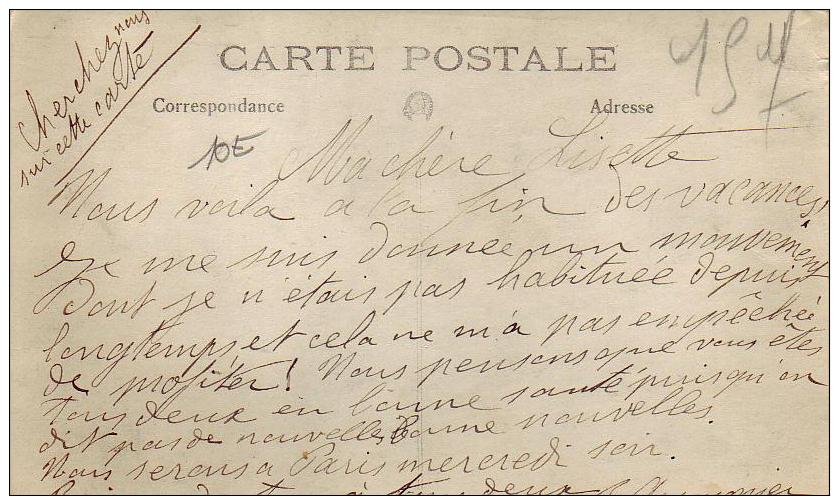 Cherchez nous
sur cette carte
CARTE POSTALE
Correspondance
Adresse
10E
Ma chère Lisette
Nous voila a la fin des vacances,
Je me suis donnée un mouvement
Dont je n'étais pas habituée depuis
longtemps, et cela ne m'a pas empêchée
de profiter! Nous pensons que vous êtes
tous deux en bonne santé puisqu'on
dit pas de nouvelles Bonne nouvelles.
Nous serons a Paris mercredi soir.